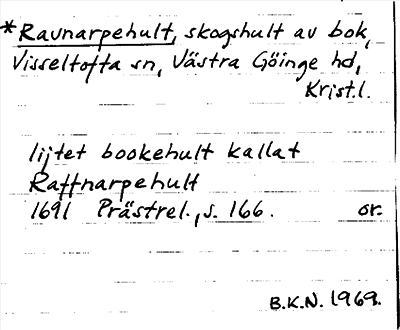 *Ravnarpehult, skogshult av bok,
Visseltofta sn, Västra Göinge hd,
Krist.l.
lijtet bookehult kallat
Raffnarpehult
1691 Prästrel., s. 166. or.
B.K.N. 1969.